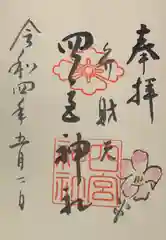 奉拝
弁財天
四宮神社
令和四年五月一日